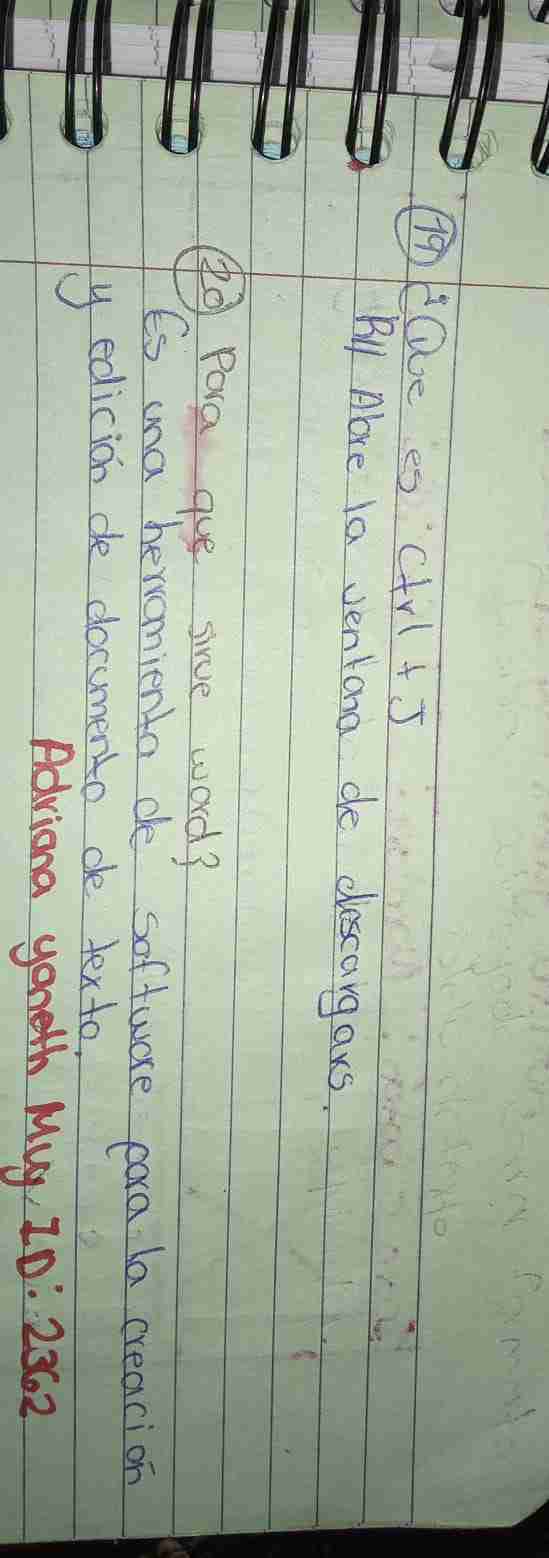 19 ¿Que es Ctrl + J
R// Abre la ventana de descargars.
20 Para que sirve word?
Es una herramienta de software para la creación
y edición de documento de texto.
Adriana yaneth Muy. ID: 2362